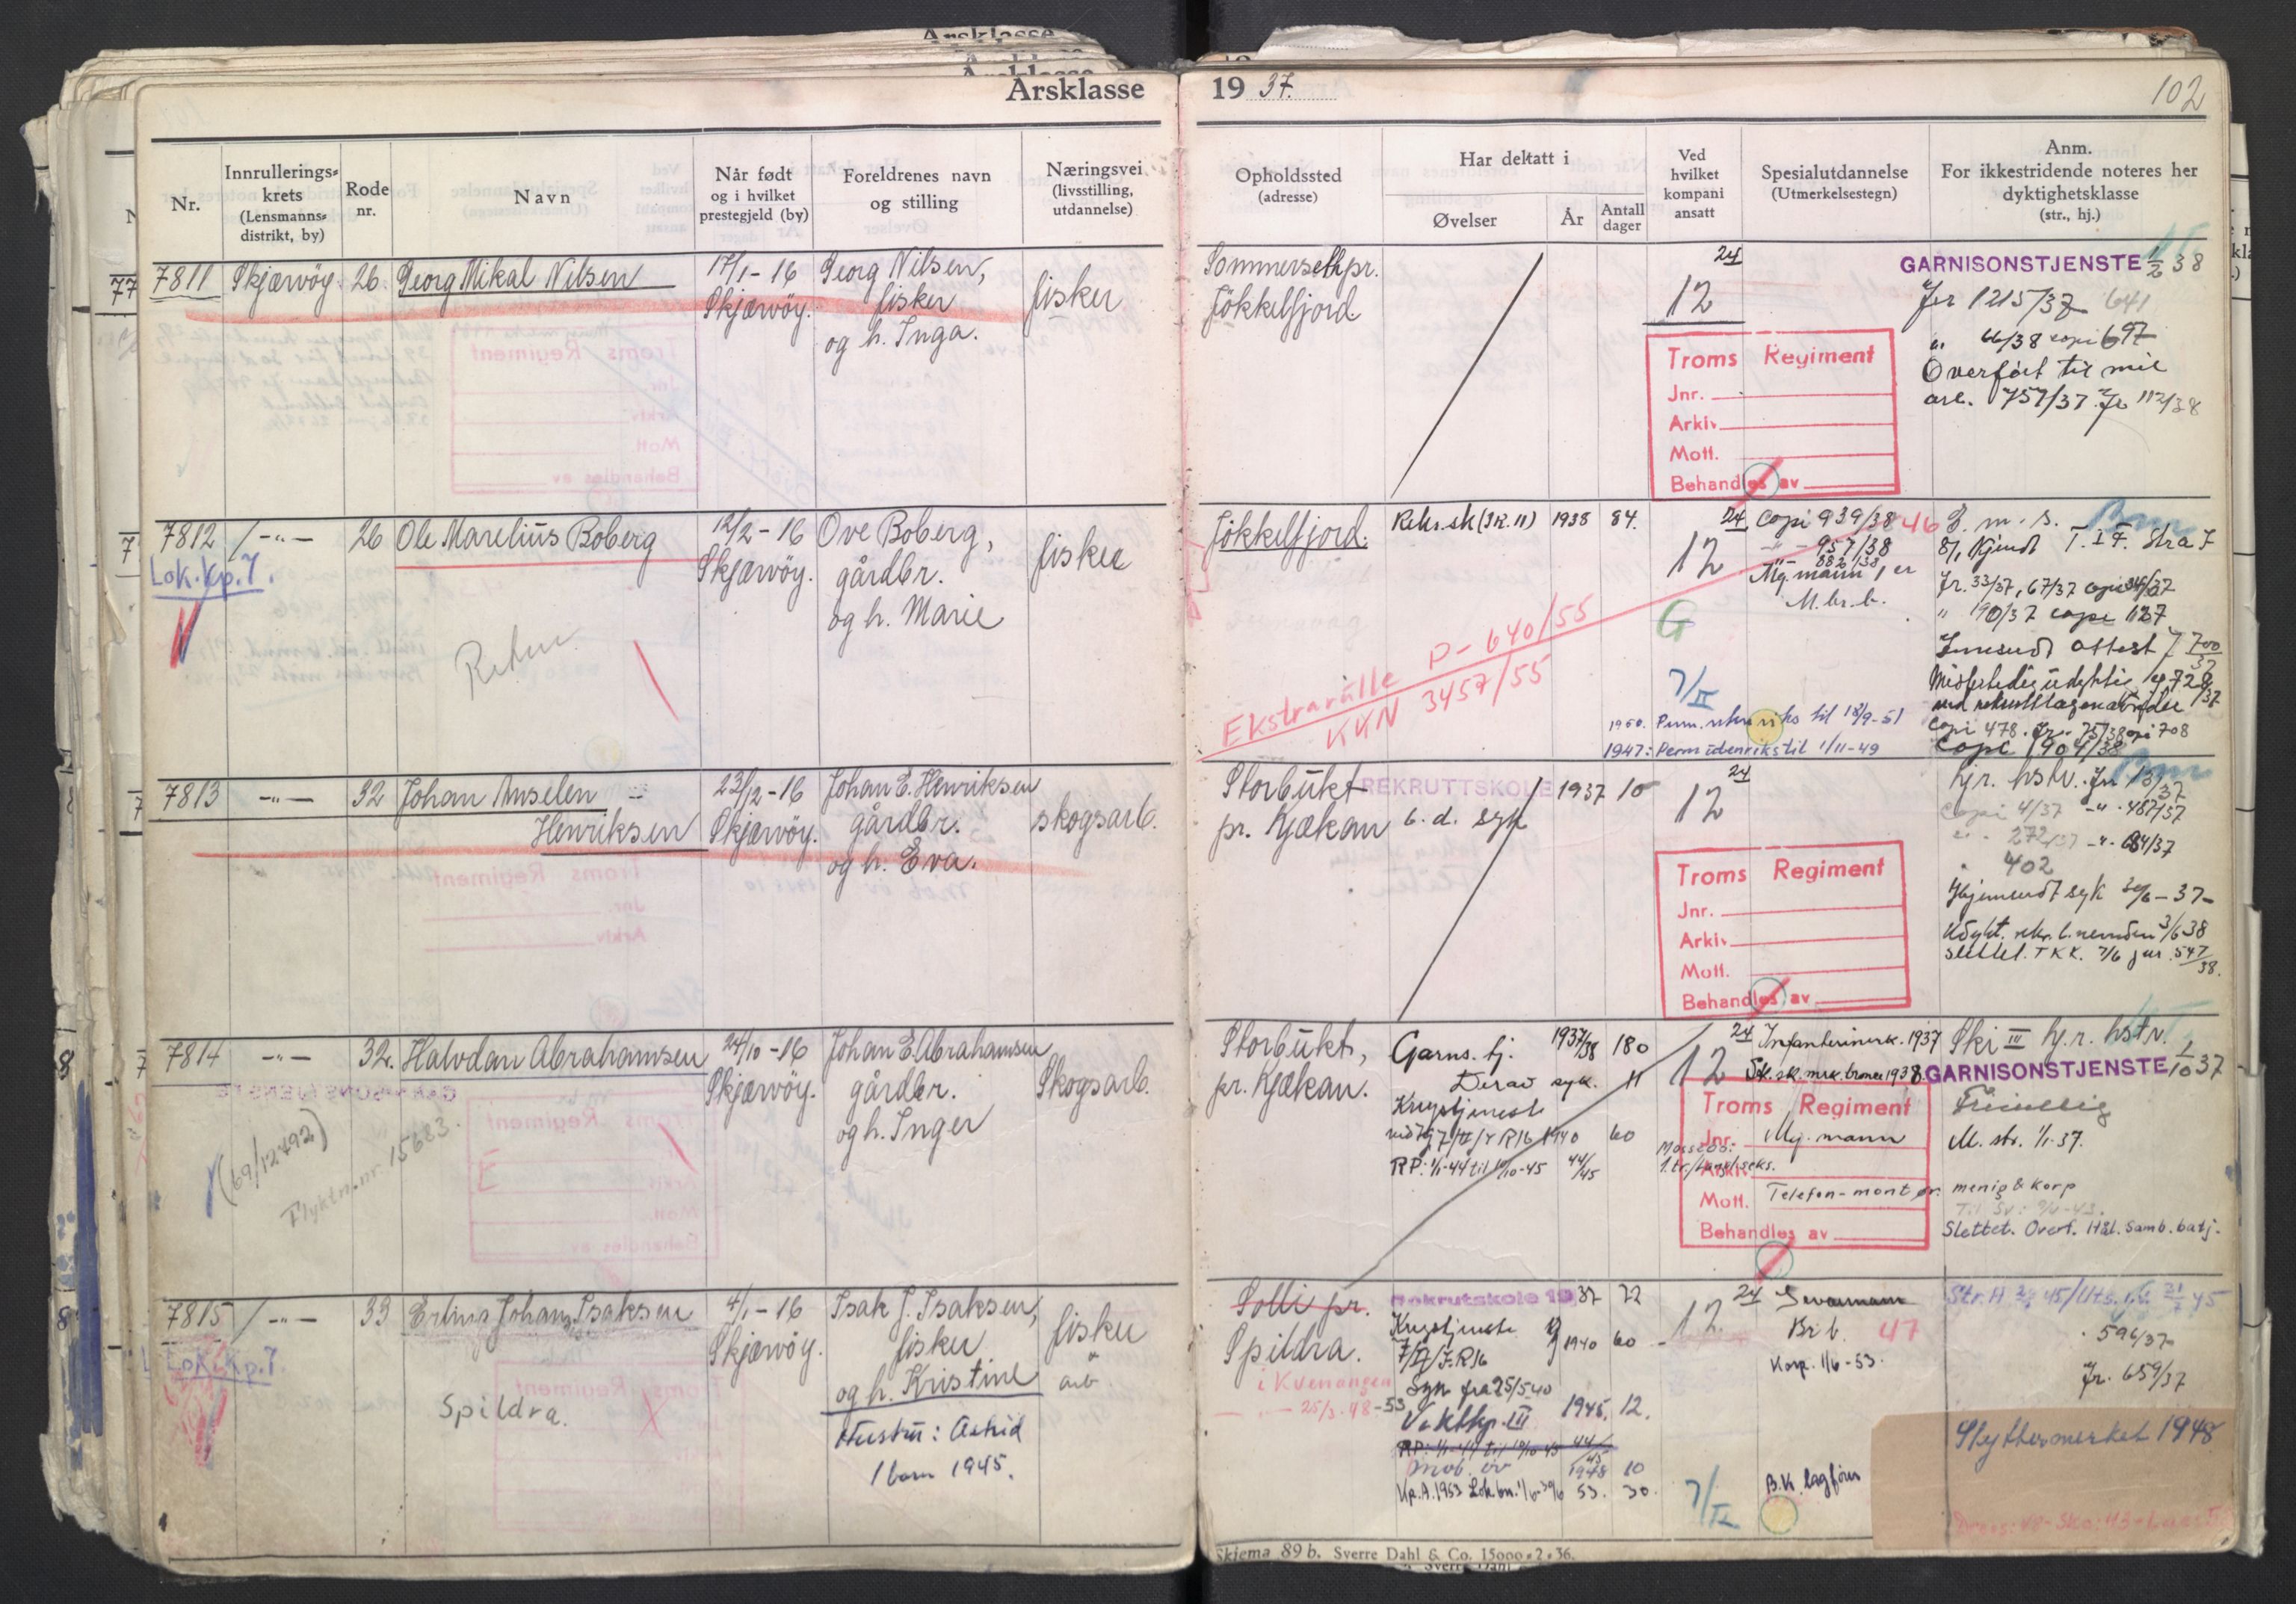 Årsklasse 19 37. 102
Nr.
Innrullerings-
krets
(Lensmanns-
distrikt, by)
Rode
nr.
Navn
Når født
og i hvilket
prestegjeld (by)
Foreldrenes navn
og stilling
Næringsvei
(livsstilling,
utdannelse)
Opholdssted
(adresse)
Har deltatt i
Øvelser
År
Antall
dager
Ved
hvilket
kompani
ansatt
Spesialutdannelse
(Utmerkelsestegn)
Anm.
For ikkestridende noteres her
dyktighetsklasse
(str., hj.)
7811 Skjærvöy 26 Georg Mikal Nilsen
17/1-16
Skjærvöy.
Georg Nilsen,
fisker
og h. Inga.
fisker
Sommerseth pr.
Jökkelfjord.
24
12
Troms Regiment
Jnr.
Arkiv
Mott.
Behandles av
GARNISONSTJENSTE 1/2 38
Jr 1215/37 641
" 66/38 copi 697
Overført til mil
arb. 757/37 Jr 112/38
7812 -"- 26 Ole Marelius Boberg
Lok.Kp.7.
12/2-16
Skjærvöy.
Ove Boberg,
gårdbr.
og h. Marie
fisker
Jökkelfjord.
Rekr.sk (IR.11) 1938 84.
24
12
G
7/II
Copi 939/38 46
-"- 957/38
882/38
Mg. mann, er
M.br.b.
Ekstrarulle P-640/55
KKN 3457/55
1950. Perm. utenriks til 18/9-51
1947: Perm utenriks til 1/11-49
Jr. 33/37, 67/37
" 190/37 copi 1127
Innsendt attest J 700/37
copi 478. Jr. 75/38 copi 708
Copi 1904/38
7813 -"- 32 Johan Anselen
Henriksen
23/12-16
Skjærvöy.
Johan E. Henriksen
gårdbr.
og h. Eva.
skogsarb.
Storbukt
pr. Kjækan
REKRUTTSKOLE 1937 10
6. d. syk
24
12
Troms Regiment
Jnr.
Arkiv
Mott.
Behandles av
hjr. hstv. Jr 13/37
Copi 4/37 -"- 487/37
" 272/37 -"- 684/37
402
Hjemsendt syk 30/6-37-
Udykt. rekr. l. nemden 3/6 38
slettet. TKK. 7/6 jnr. 547/38.
7814 -"- 32. Halvdan Abrahamsen
(69/12792)
Flyktn.nr. 15683.
24/10-16
Skjærvöy.
Johan E. Abrahamsen
gårdbr.
og h. Inger
Skogsarb.
Storbukt,
pr. Kjækan.
Garns. tj. 1937/38 180
Derav syk. 11
Krigstjeneste
ved 7/II/IR16 1940 60
RP: 1/1-44 til 10/10-45 44/45
24
12
Infanterimerk. 1937
Sk.sk.mrk. bronse 1938.
Troms Regiment
Jnr. Mg. mann
Arkiv
Mott. Telefon-montør.
Behandles av
Ski III hj.r. hstv.
GARNISONSTJENSTE 1/10 37
Frivillig
M. str. 1/1-37.
menig & korp
Slettet. Overf. Hål. samb. batj.
7815 -"- 33 Erling Johan Isaksen
Lok.Kp.7.
Spildra.
4/1-16
Skjærvöy.
Isak J. Isaksen,
fisker
og h. Kristine
Hustru: Astrid
1 barn 1945.
fisker
arb
Solli pr.
Spildra.
i Kvenangen
25/3-48-53
Rekrutskole 19 37 72
Krigstjeneste
7/II/I.R16 1940 60
Syk fra 25/5 40
Vaktkp. III 1945. 12.
RP: 1/1-44 til 10/10-45 44/45
Mob. öv 1948 10
Kp.A.1953 Lok.bn. 1/6-30/6 53. 30.
24
12.
7/II
Br b. 47
Korp. 1/6-53.
B.K. lagfører
596/37
Jr. 659/37
Skyttermerket 1948
Skjema 89 b. Sverre Dahl & Co. 15000-2-36.